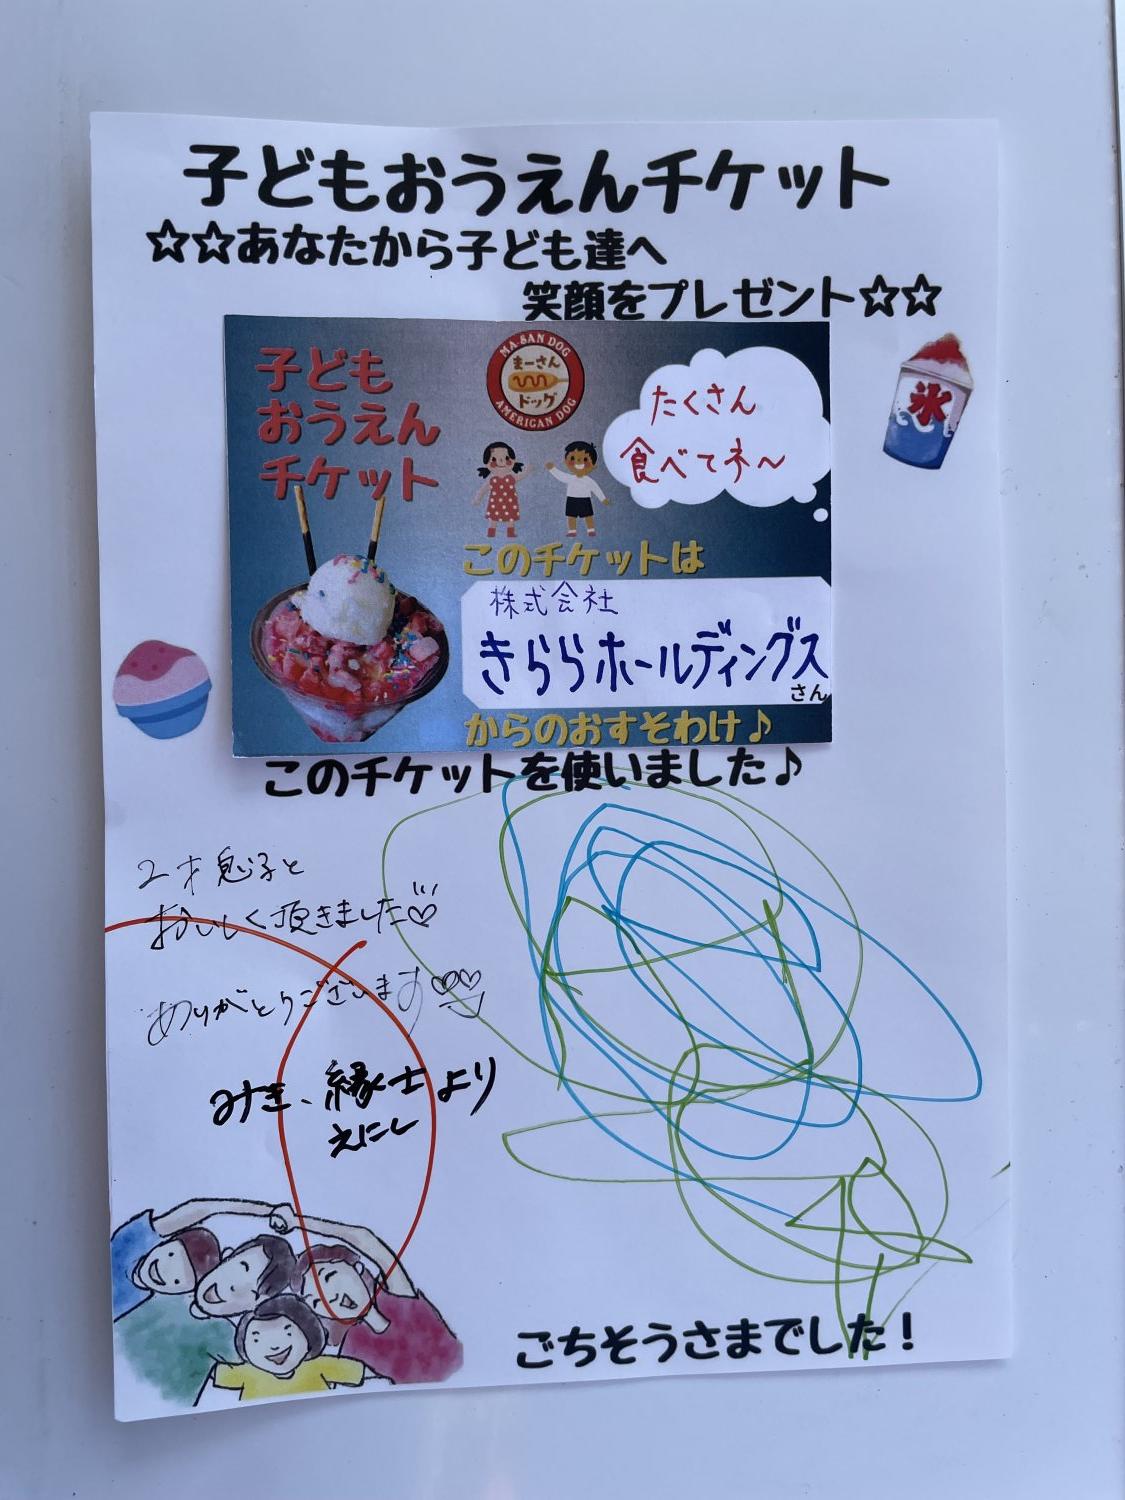 子どもおうえんチケット
☆☆あなたから子ども達へ
笑顔をプレゼント☆☆
子ども
おうえん
チケット
MA-SAN DOG
まーさん
ドッグ
AMERICAN DOG
たくさん
食べてネ〜
氷
このチケットは
株式会社
きららホールディングス
さん
からのおすそわけ♪
このチケットを使いました♪
2才息子と
おいしく頂きました♡
ありがとうございます♡♡
みき、縁士より
えにし
ごちそうさまでした！